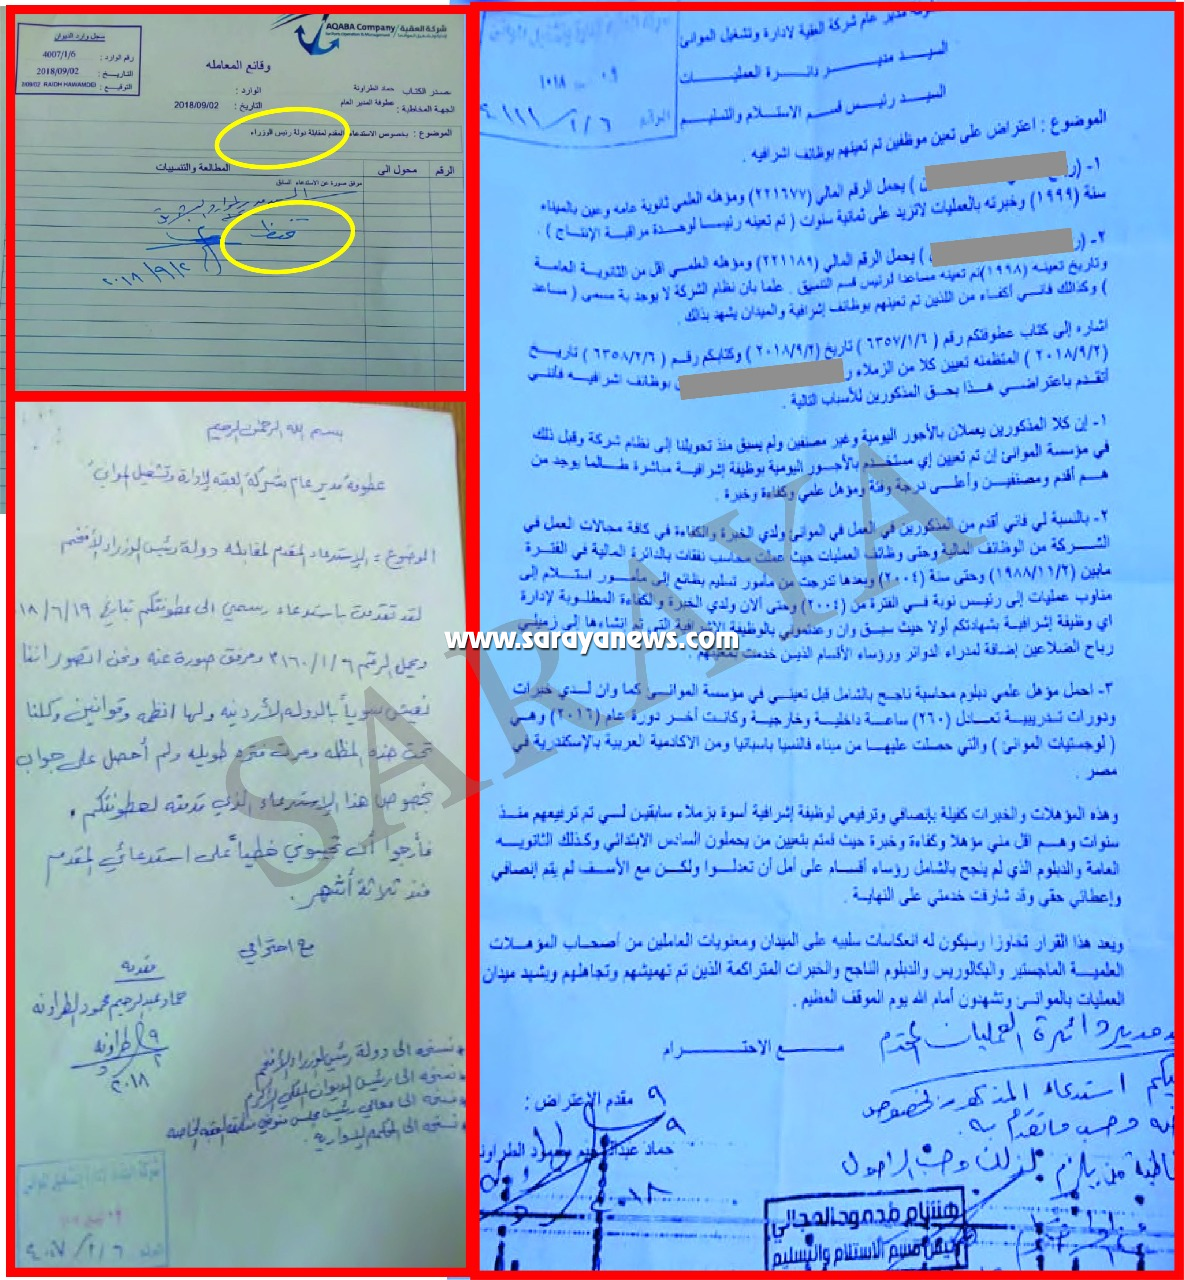 شركة العقبة
AQABA Company
for Ports Operation & Management
سجل وارد الديوان
رقم الوارد : 4007/1/6
التاريخ : 2018/09/02
التوقيع : RAIDH HAWAMDEI
وقائع المعامله
مصدر الكتاب : حماد الطراونة
الوارد :
الجهة المخاطبة : عطوفة المدير العام
التاريخ : 2018/09/02
الموضوع : بخصوص الاستدعاء المقدم لمقابلة دولة رئيس الوزراء
الرقم محول الى المطالعة والتنسيبات
مرفق صورة عن الاستدعاء السابق
٢٠١٨/٩/٢
بسم الله الرحمن الرحيم
عطوفة مدير عام شركة العقبة لإدارة وتشغيل الموانئ
الموضوع : الإستدعاء المقدم لمقابلة دولة رئيس الوزراء الأفخم
لقد تقدمت باستدعاء رسمي الى عطوفتكم بتاريخ ١٨/٦/١٩
ويحمل الرقم ٣١٦٠/١/٦ ومرفق صورة عنه ونحن نتصور اننا
نعيش سوياً بالدولة الأردنية ولها انظمة وقوانين وكلنا
تحت هذه المظله ومرت فتره طويله ولم أحصل على جواب
بخصوص هذا الإستدعاء الذي قدمته لعطوفتكم .
فأرجوا أن تجيبوني خطياً على استدعائي المقدم
منذ ثلاثة أشهر .
مع احترامي
مقدمه
حماد عبدالرحيم محمود الطراونه
٢٠١٨
* نسخه الى دولة رئيس الوزراء الأفخم
* نسخه الى رئيس الديوان الملكي الأكرم
* نسخه الى معالي رئيس مجلس مفوضي سلطة العقبه الخاصه
٤٠٥٧/٢/٦
مدير عام شركة العقبة لإدارة وتشغيل الموانئ
السيد مديـــــر دائرة العمليـــات
السيد رئيس قسم الاستلام والتسليم
الرقم
الموضوع : اعتراض على تعين موظفين تم تعينهم بوظائف اشرافيه .
١- ( ) يحمل الرقم المالي (٢٢١٦٧٧) ومؤهله العلمي ثانوية عامه وعين بالميناء
سنة (١٩٩٩) وخبرته بالعمليات لاتزيد على ثمانية سنوات ( تم تعينه رئيسا لوحدة مراقبة الإنتاج ) .
٢- ( ) يحمل الرقم المالي (٢٢١١٨٩) ومؤهله العلمي أقل من الثانوية العامة
وتاريخ تعينه (١٩٩٨) تم تعينه مساعدا لرئيس قسم التنسيق . علما بأن نظام الشركة لا يوجد به مسمى ( مساعد
) وكذالك فانني أكفاء من اللذين تم تعينهم بوظائف إشرافية والميدان يشهد بذالك .
اشاره إلى كتاب عطوفتكم رقم ( ٦٣٥٧/١/٦) تاريخ (٢٠١٨/٩/٢) وكتابكم رقم (٦٣٥٨/٢/٦ ) تاريخ
(٢٠١٨/٩/٢) المتظمنه تعيين كلا من الزملاء بوظائف اشرافيه فأنني
أتقدم باعتراضي هذا بحق المذكورين للأسباب التالية .
١- إن كلا المذكورين يعملان بالأجور اليومية وغير مصنفين ولم يسبق منذ تحويلنا إلى نظام شركة وقبل ذلك
في مؤسسة الموانئ إن تم تعيين إي مستخدم بالأجور اليومية بوظيفة إشرافية مباشرة طالما يوجد من
هم أقدم ومصنفين وأعلى درجة وفئة ومؤهل علمي وكفاءة وخبرة .
٢- بالنسبة لي فاني أقدم من المذكورين في العمل في الموانئ ولدي الخبرة والكفاءة في كافة مجالات العمل في
الشركة من الوظائف المالية وحتى وظائف العمليات حيث عملت محاسب نفقات بالدائرة المالية في الفترة
مابين (١٩٨٨/١١/٢) وحتى سنة (٢٠٠٤) وبعدها تدرجت من مأمور تسليم بظائع إلى مأمور استلام إلى
مناوب عمليات إلى رئيس نوبة في الفترة من (٢٠٠٤) وحتى ألان ولدي الخبرة والكفاءة المطلوبة لإدارة
اي وظيفة إشرافية بشهادتكم أولا حيث سبق وان وعدتموني بالوظيفة الإشرافية التي تم إنشاءها إلى زميلي
رباح الضلاعين إضافة لمدراء الدوائر ورؤساء الأقسام الذين خدمت بمعيتهم .
٣- احمل مؤهل علمي دبلوم محاسبة ناجح بالشامل قبل تعيني في مؤسسة الموانئ كما وان لدي خبرات
ودورات تدريبية تعادل (٢٦٠) ساعة داخلية وخارجية وكانت أخر دورة عام (٢٠١٦) وهي
( لوجستيات الموانئ ) والتي حصلت عليها من ميناء فالنسيا باسبانيا ومن الاكادمية العربية بالإسكندرية في
مصر .
وهذه المؤهلات والخبرات كفيلة بإنصافي وترفيعي لوظيفة إشرافية أسوة بزملاء سابقين لي تم ترفيعهم منذ
سنوات وهم اقل مني مؤهلا وكفاءة وخبرة حيث قمتم بتعيين من يحملون السادس الابتدائي وكذلك الثانويه
العامة والدبلوم الذي لم ينجح بالشامل رؤساء أقسام على أمل أن تعدلوا ولكن مع الأسف لم يتم إنصافي
وإعطائي حقي وقد شارفت خدمتي على النهاية .
ويعد هذا القرار تخاوزا وسيكون له انعكاسات سلبيه على الميدان ومعنويات العاملين من أصحاب المؤهلات
العلمية الماجستير والبكالوريس والدبلوم الناجح والخبرات المتراكمة الذين تم تهميشهم وتجاهلهم ويشيد ميدان
العمليات بالموانئ وتشهدون أمام الله يوم الموقف العظيم .
مـــع الاحتـــرام
مدير دائرة العمليات المحترم
استدعاء المذكور بخصوص
مقدم الإعتراض :
حماد عبدالرحيم محمود الطراونة
هشام محمود المجالي
رئيس قسم الاستلام والتسليم
SARAYA
www.sarayanews.com